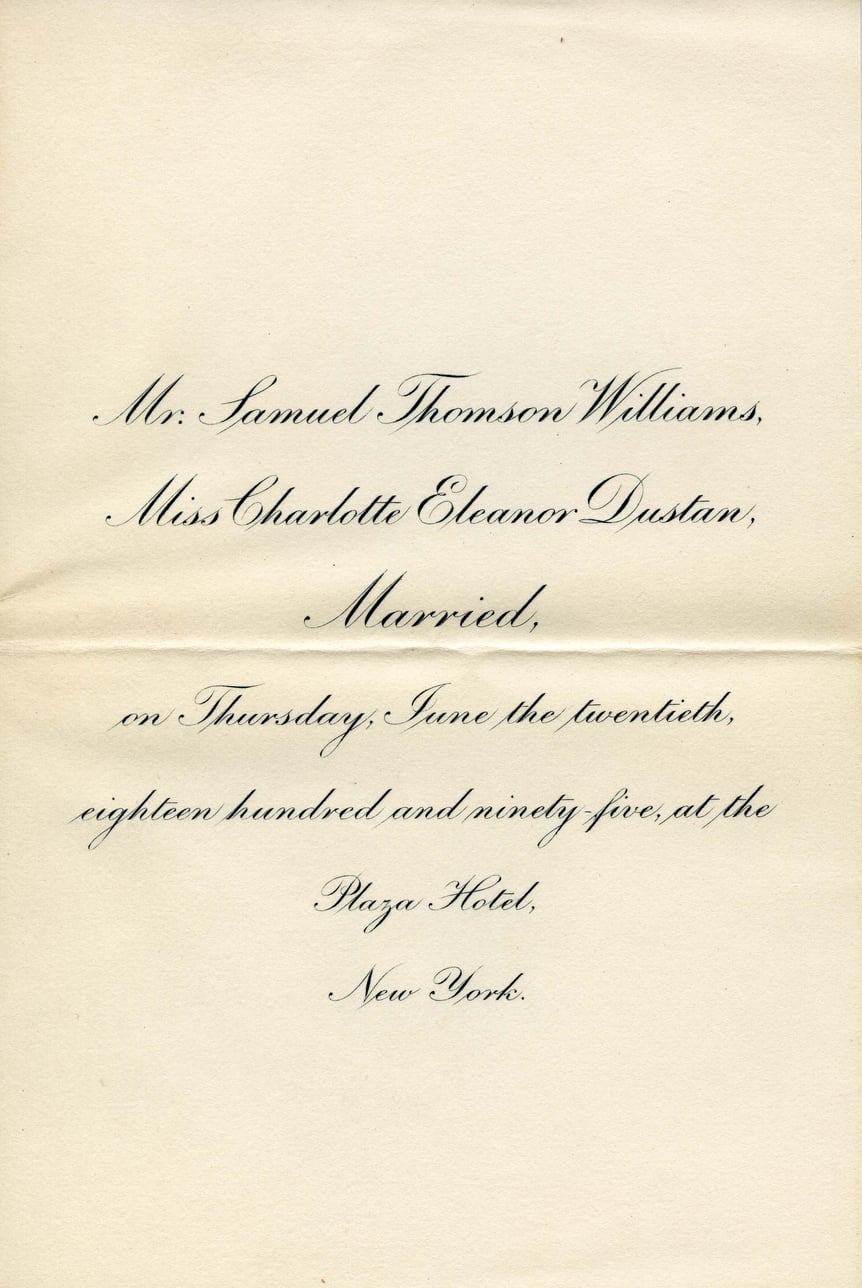 Mr. Samuel Thomson Williams,
Miss Charlotte Eleanor Dustan,
Married,
on Thursday, June the twentieth,
eighteen hundred and ninety-five, at the
Plaza Hotel,
New York.